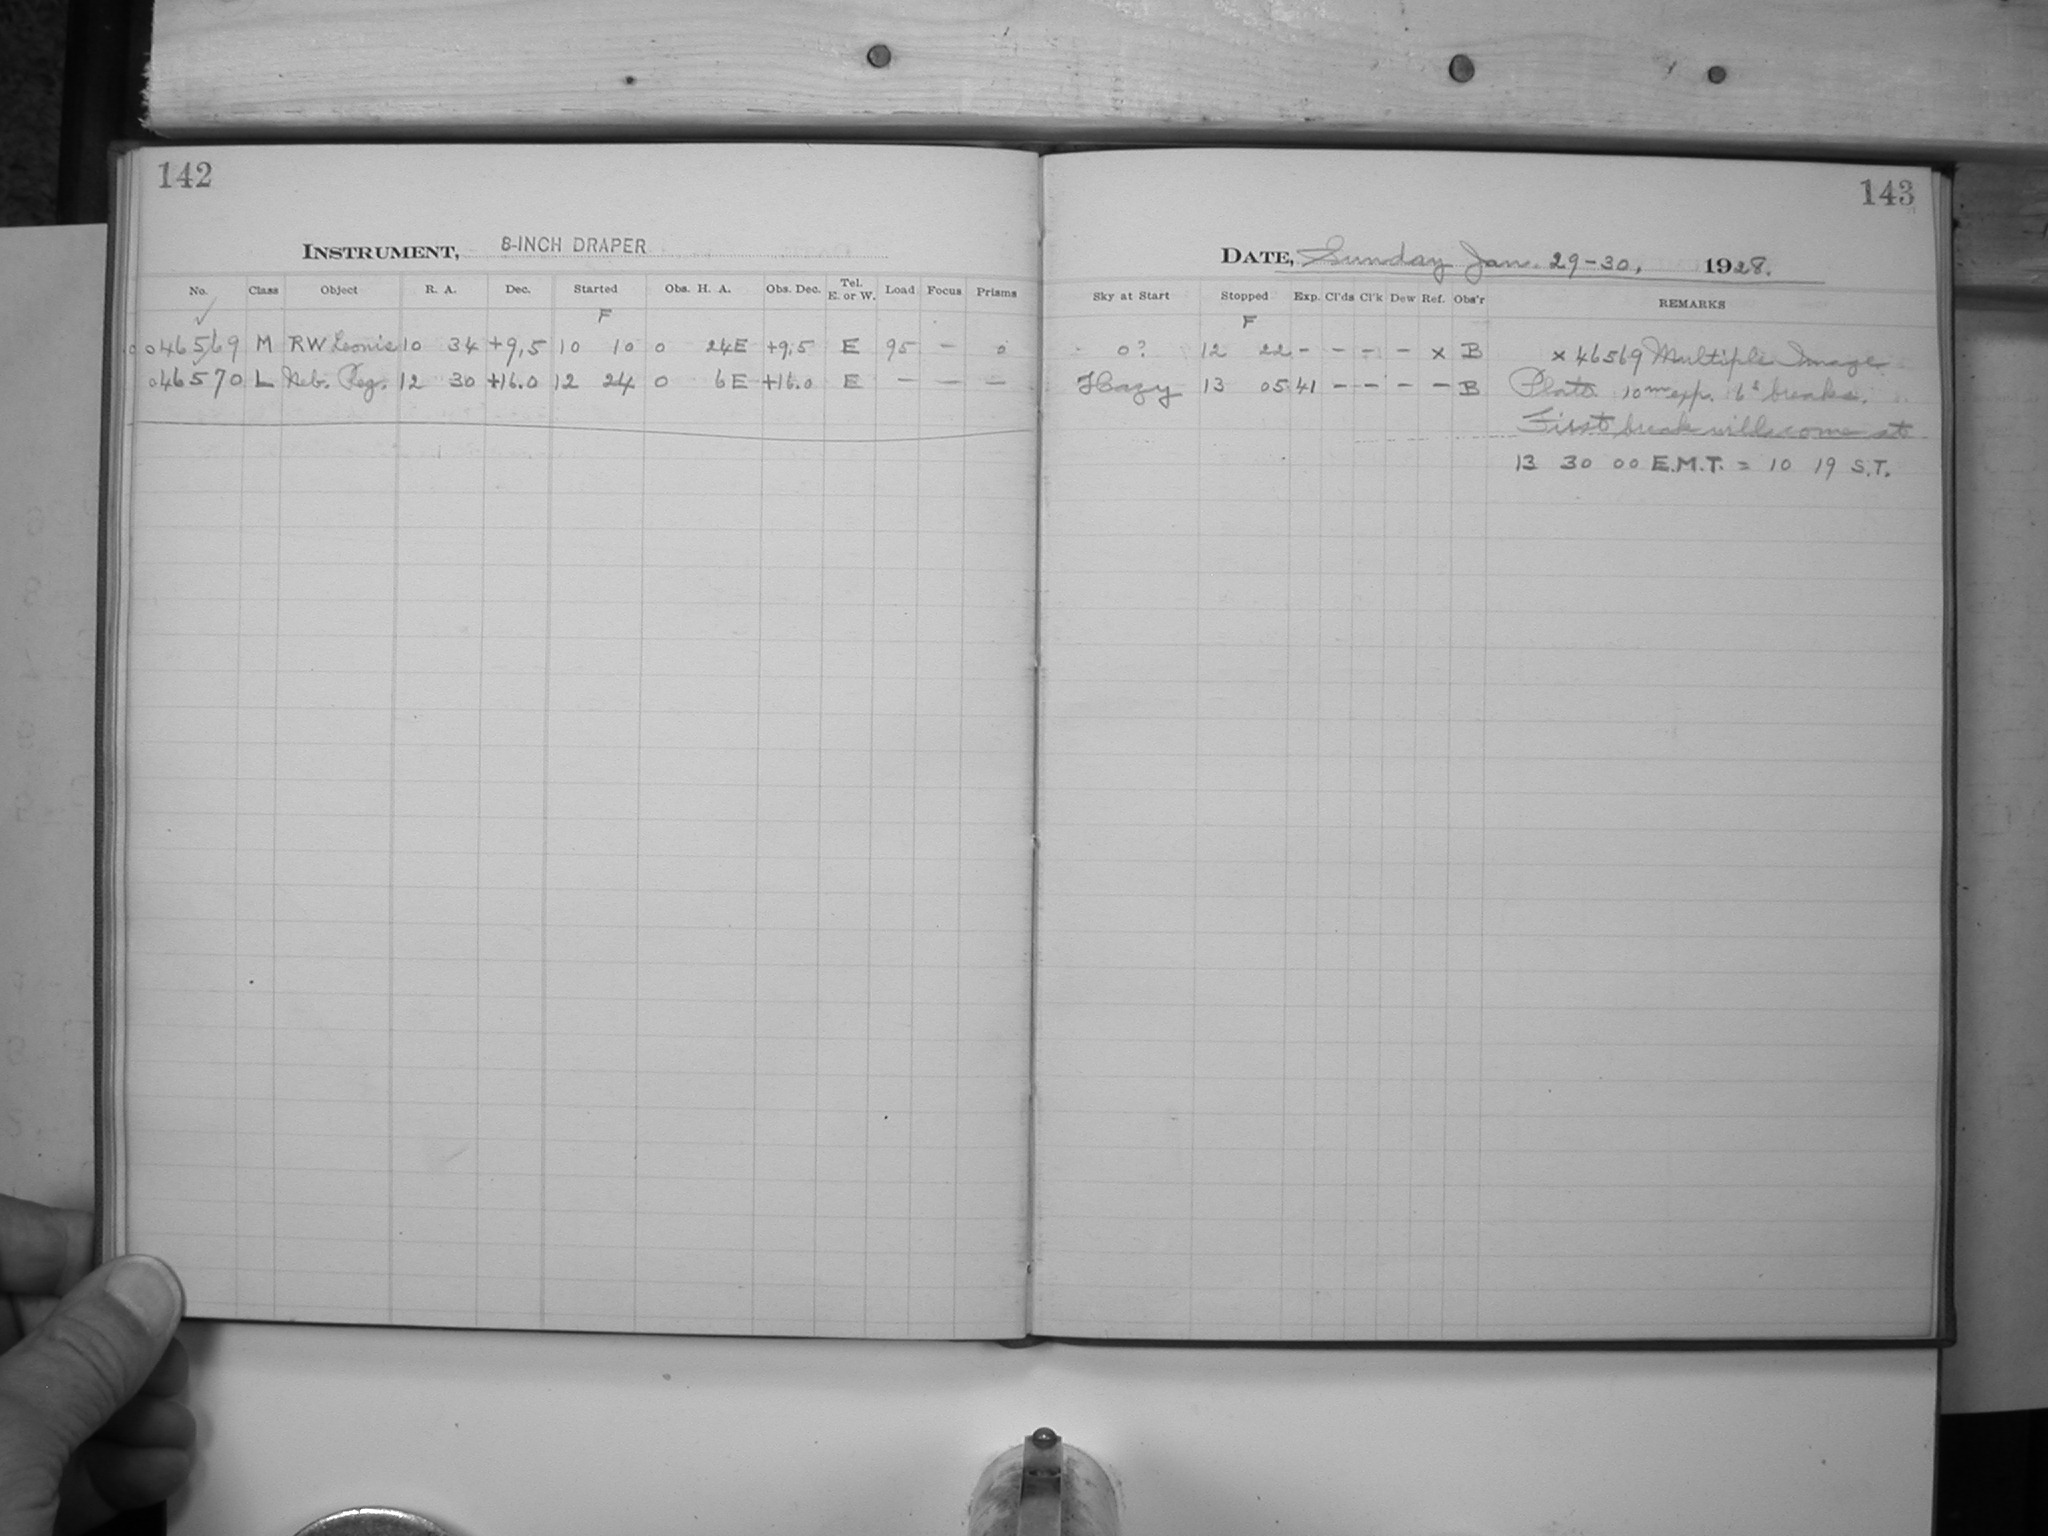 142
INSTRUMENT, 8-INCH DRAPER
No. Class Object R. A. Dec. Started Obs. H. A. Obs. Dec. Tel. E. or W. Load Focus Prisms
✓ F
046569 M RW Leonis 10 34 +9.5 10 10 0 24E +9.5 E 95 – 0
046570 L Neb. Reg. 12 30 +16.0 12 24 0 6E +16.0 E – – –
143
DATE, Sunday Jan. 29-30, 1928.
Sky at Start Stopped Exp. Cl'ds Cl'k Dew Ref. Obs'r REMARKS
F
0? 12 22 – – – – x B x 46569 Multiple Image
Hazy 13 05 41 – – – – B Plate 10m exp. 6s breaks.
First break will come at
13 30 00 E.M.T. = 10 19 S.T.